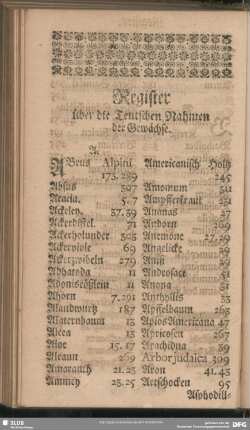 Register
über die Teutschen Nahmen
der Gewächse.
A.
ABrus Alpini
173. 289
Absus 307
Acacia. 5. 7
Ackeley. 37. 39
Ackerdistel. 71
Ackerholunder 305
Ackerviole 69
Ackerzwibeln 279
Adharoda 11
Adonisrößlein 11
Ahorn 7. 291
Alandwurtz 187
Alaternbaum 13
Alcea 13
Aloe 15. 17
Alraun 269
Amaranth 21. 23
Ammey 23. 25
Americanisch Holtz
245
Amomum
Ampfferkraut
Ananas 27
Andorn 269
Anemone
Angelicke
Aniß
Androsace 31
Anona 31
Anthyllis 33
Apffelbaum 263
Apios Americana 47
Apricosen 267
Arachidna 39
Arbor judaica 309
Aron 41. 43
Artschocken 95
Asphodill-
SLUB